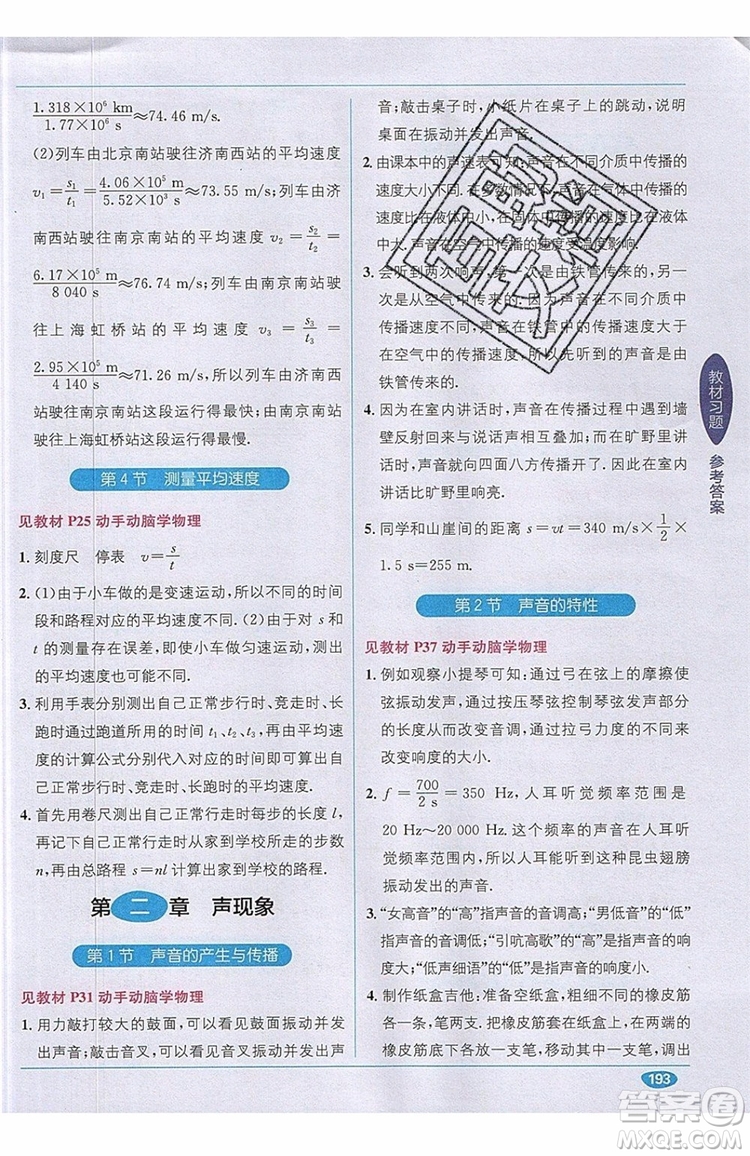 1.318×10⁶ km/1.77×10⁴ s≈74.46 m/s.
(2)列车由北京南站驶往济南西站的平均速度
v₁=s₁/t₁=4.06×10⁵ m/5.52×10³ s≈73.55 m/s;列车由济
南西站驶往南京南站的平均速度 v₂=s₂/t₂=
6.17×10⁵ m/8 040 s≈76.74 m/s;列车由南京南站驶
往上海虹桥站的平均速度 v₃=s₃/t₃=
2.95×10⁵ m/4 140 s≈71.26 m/s,所以列车由济南西站
驶往南京南站这段运行得最快;由南京南站驶
往上海虹桥站这段运行得最慢.
第4节 测量平均速度
见教材 P25 动手动脑学物理
1. 刻度尺 停表 v=s/t
2. (1)由于小车做的是变速运动,所以不同的时间
段和路程对应的平均速度不同. (2)由于小车
的测量存在误差,即使小车做匀速运动,测出
的平均速度也可能不同.
3. 利用手表分别测出自己正常步行时、竞走时、长
跑时通过跑道所用的时间 t₁、t₂、t₃,由平均速
度的计算公式分别代入对应的时间即可算出自
己正常步行、竞走、长跑的速度.
4. 首先用卷尺测出自己正常步行时每步的长度 l,
再记下自己正常步行时从家到学校所走的步数
n,由总路程 s=nl 计算出家到学校的路程.
第二章 声现象
第1节 声音的产生与传播
见教材 P31 动手动脑学物理
1. 用力敲打较大的鼓面,可以看见鼓面振动并发
出声音;敲击音叉,可以看见音叉振动并发出声
音;敲击桌子时,小纸片在桌子上的跳动,说明
桌面在振动并发出声音.
2. 由课本中的声速表可知:声音在不同介质中传播的
速度大小不同. 在多数情况下,声音在气体中传播的
速度比液体中小,在固体中传播的速度比在液体
中大. 声音在空气中传播的速度受温度影响.
3. 会听到两次响声. 第一次是由铁管传来的,另一
次是从空气中传来的. 因为声音在不同介质中
传播速度不同,声音在铁管中的传播速度大于
在空气中的传播速度,所以第一次听的声音由
铁管传来.
4. 因为在室内讲话时,声音在传播过程中遇到墙
壁反射回来与原声相互叠加;而在旷野里讲
话时,声音向四面八方传播开了,所以在室内
讲话声音比旷野里响亮.
5. 同学和山崖间的距离 s=vt=340 m/s×1/2×
1.5 s=255 m.
第2节 声音的特性
见教材 P37 动手动脑学物理
1. 例如观察小提琴可知:通过弓在弦上的摩擦使
弦振动发声,通过按压琴弦控制琴弦发声部分
的长度从而改变音调,通过拉弓力度的不同来
改变响度的大小.
2. f=700/2 s=350 Hz,人耳听觉频率范围是
20 Hz～20 000 Hz. 这个频率的声音在人耳听
觉频率范围内,所以人耳能听到这种昆虫翅膀
振动发出的声音.
3. “女高音”的“高”指声音的音调高;“男低音”的“低”
指声音的音调低;“引吭高歌”的“高”是指响度大;
“低声细语”的“低”指声音的响度小.
4. 制作纸盒吉他:准备空纸盒,粗细不同的橡皮筋
各一条,笔两支. 把橡皮筋套在纸盒上,在两端的
橡皮筋底下各放一支笔,移动其中一支笔,调出
教材习题
参考答案
193
答案圈
MXQE.COM